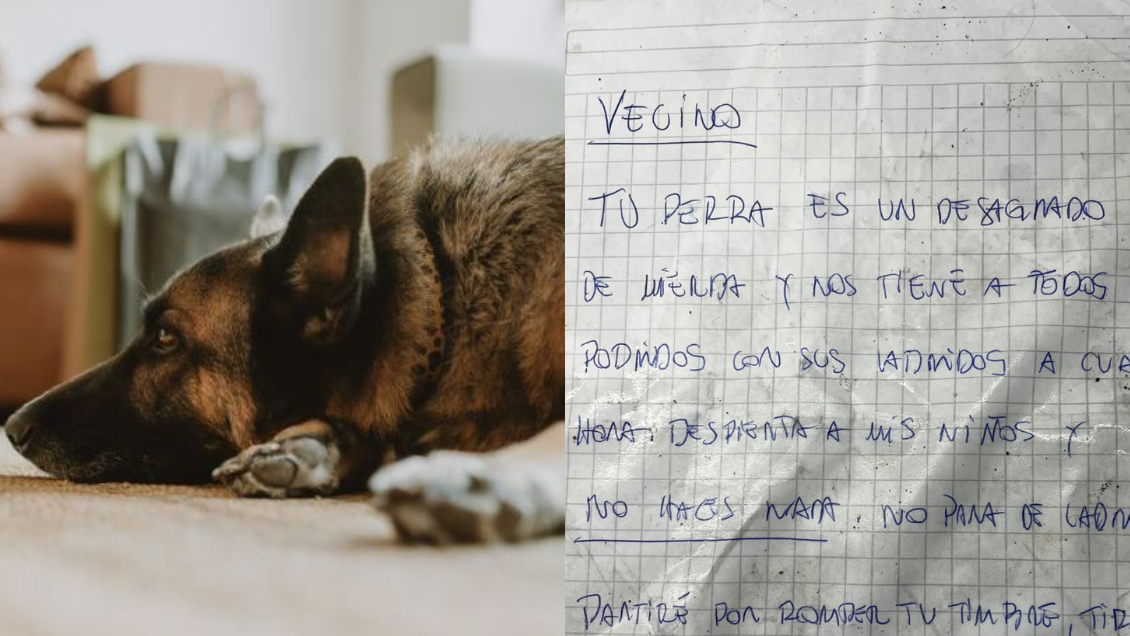 VECINO
TU PERRA ES UN DESAGRADO
DE MIERDA Y NOS TIENE A TODOS
PODRIDOS CON SUS LADRIDOS A CUA
HORA. DESPIERTA A MIS NIÑOS Y
NO HACES NADA. NO PARA DE LADR
PARTIRÉ POR ROMPER TU TIMBRE, TIR